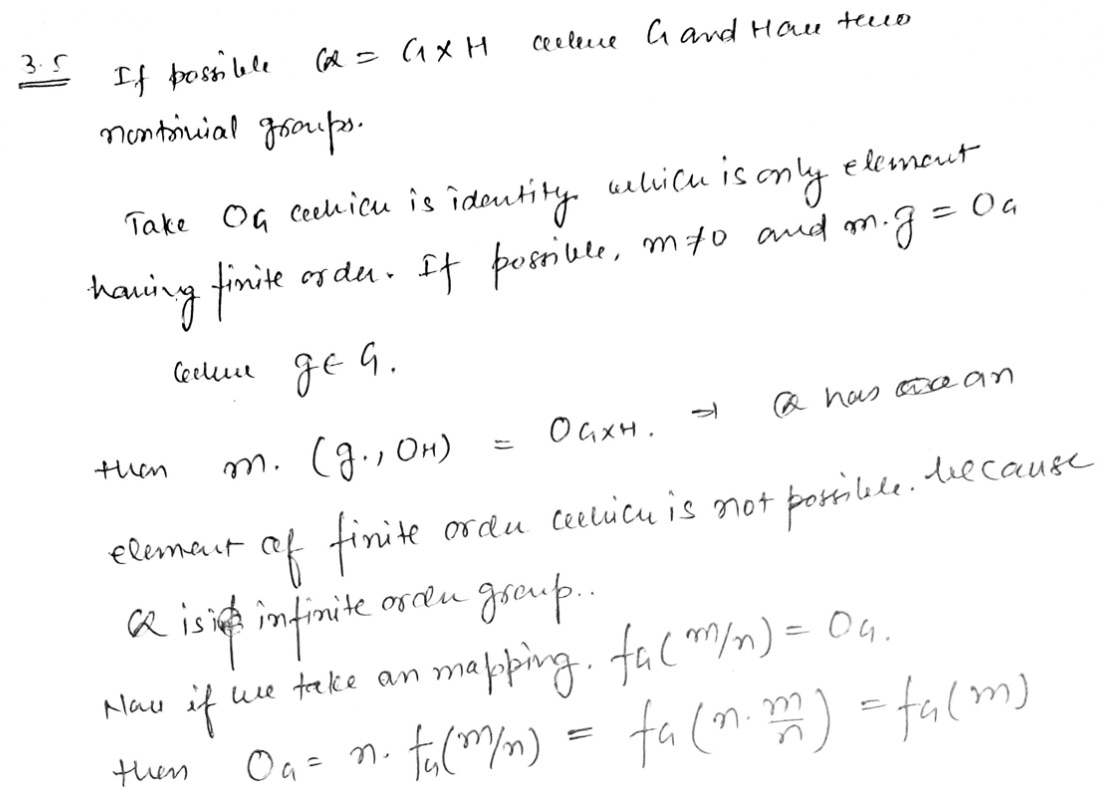 3.5 If possible Q = G x H where G and H are two
nontrivial groups.
Take 0G which is identity which is only element
having finite order. If possible, m≠0 and m.g = 0G
where g∈G.
then m. (g., 0H) = 0GxH. ⇒ Q has an
element of finite order which is not possible. because
Q is infinite order group..
Now if we take an mapping. fG(m/n) = 0G.
then 0G = n. fG(m/n) = fG(n. m/n) = fG(m)